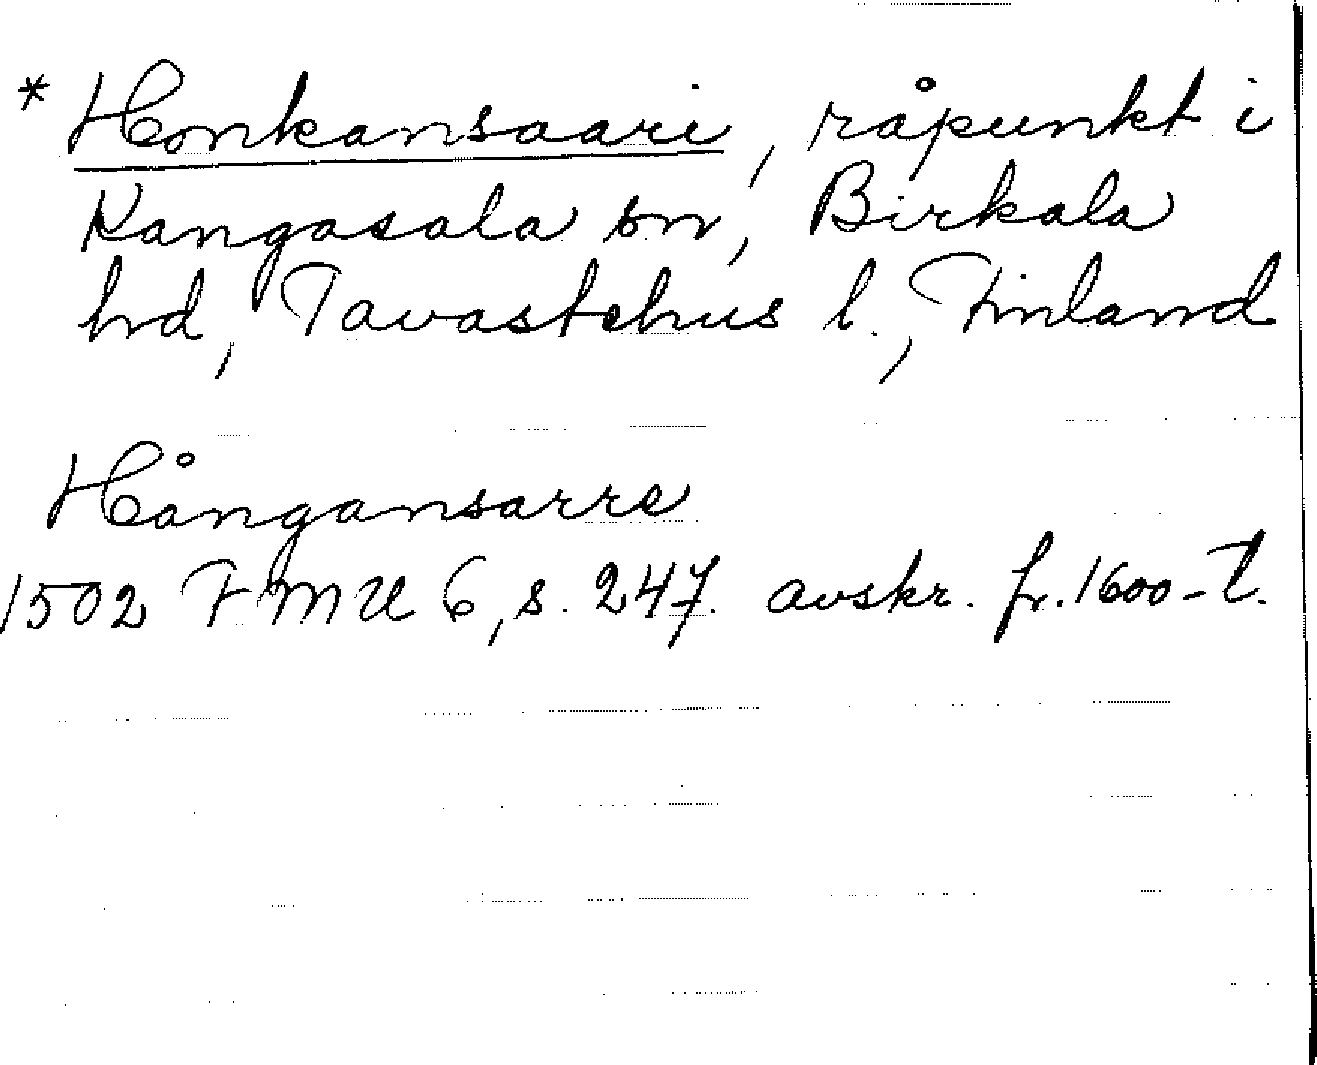 * Honkansaari, råpunkt i
Kangasala sn, Birkala
hd, Tavastehus l., Finland
Hångansarre
1502 FMU 6, s. 247. avskr. fr. 1600-t.